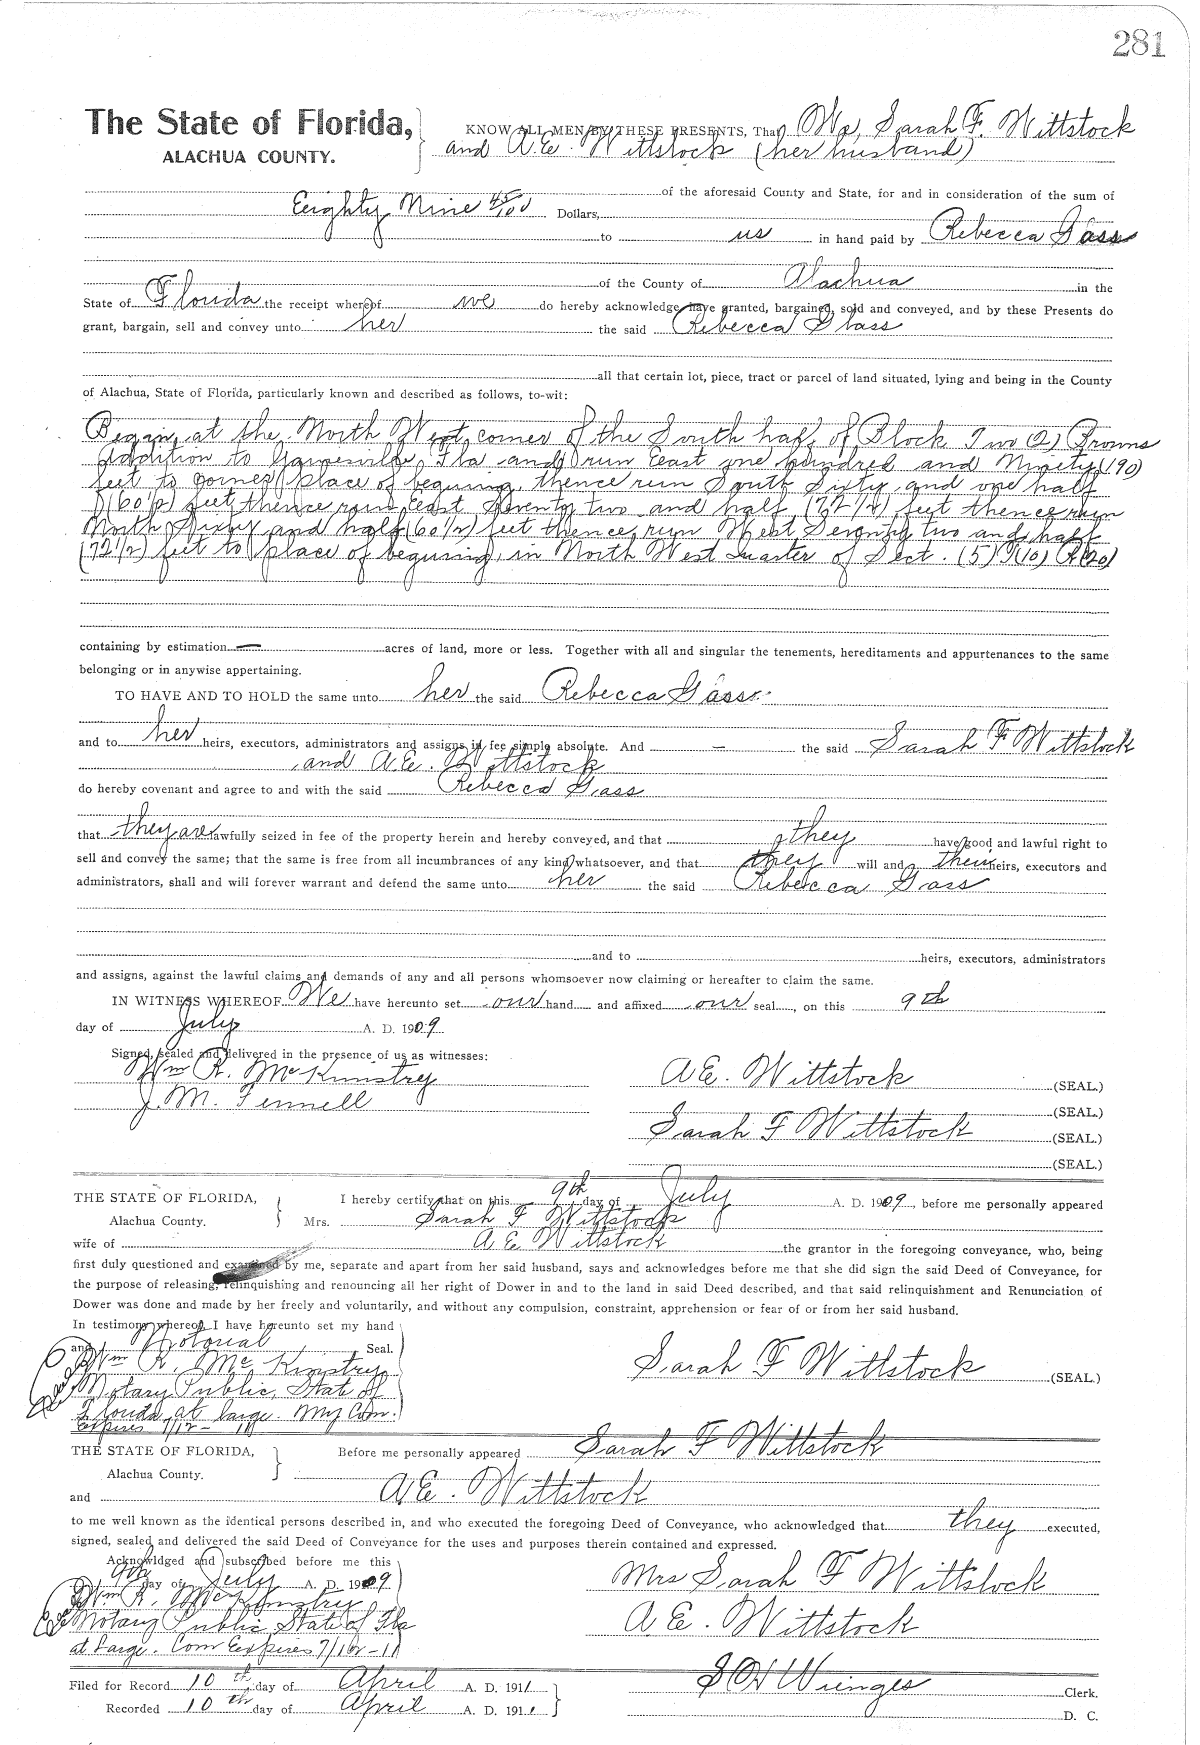 281
The State of Florida,
ALACHUA COUNTY.
KNOW ALL MEN BY THESE PRESENTS, That We, Sarah F. Wittstock
and A.E. Wittstock (her husband)
of the aforesaid County and State, for and in consideration of the sum of
Eighty Nine 45/100 Dollars,
to us in hand paid by Rebecca Gass
of the County of Alachua in the
State of Florida the receipt whereof we do hereby acknowledge, have granted, bargained, sold and conveyed, and by these Presents do
grant, bargain, sell and convey unto her the said Rebecca Glass
all that certain lot, piece, tract or parcel of land situated, lying and being in the County
of Alachua, State of Florida, particularly known and described as follows, to-wit:
Begin, at the North West corner of the South half of Block Two (2) Broms
Addition to Gainesville, Fla and run East one hundred and Ninety (190)
feet to place of begining, thence run South Sixty, and one half
(60½) feet, thence run East Seventy two and half (72½) feet thence run
North Sixty and half (60½) feet thence run West Seventy two and half
(72½) feet to place of begining, in North West quarter of Sect. (5) T(10) R(20)
containing by estimation — acres of land, more or less. Together with all and singular the tenements, hereditaments and appurtenances to the same
belonging or in anywise appertaining.
TO HAVE AND TO HOLD the same unto her the said Rebecca Gass
and to her heirs, executors, administrators and assigns in fee simple absolute. And – the said Sarah F Wittstock
and A.E. Wittstock
do hereby covenant and agree to and with the said Rebecca Gass
that they are lawfully seized in fee of the property herein and hereby conveyed, and that they have good and lawful right to
sell and convey the same; that the same is free from all incumbrances of any kind whatsoever, and that they will and their heirs, executors and
administrators, shall and will forever warrant and defend the same unto her the said Rebecca Gass
and to heirs, executors, administrators
and assigns, against the lawful claims and demands of any and all persons whomsoever now claiming or hereafter to claim the same.
IN WITNESS WHEREOF We have hereunto set our hand and affixed our seal, on this 9th
day of July A. D. 1909
Signed, sealed and delivered in the presence of us as witnesses:
Wm R. McKinstry
J. M. Fennell
A E. Wittstock (SEAL.)
(SEAL.)
Sarah F Wittstock (SEAL.)
(SEAL.)
THE STATE OF FLORIDA,
Alachua County.
I hereby certify that on this 9th day of July A. D. 1909, before me personally appeared
Mrs. Sarah F Wittstock
wife of A E Wittstock the grantor in the foregoing conveyance, who, being
first duly questioned and examined by me, separate and apart from her said husband, says and acknowledges before me that she did sign the said Deed of Conveyance, for
the purpose of releasing, relinquishing and renouncing all her right of Dower in and to the land in said Deed described, and that said relinquishment and Renunciation of
Dower was done and made by her freely and voluntarily, and without any compulsion, constraint, apprehension or fear of or from her said husband.
In testimony whereof I have hereunto set my hand
and Notorial Seal.
Wm R. McKinstry
Notary Public, State of
Florida at large. My Com.
Expires 7/12-11
Sarah F Wittstock (SEAL.)
THE STATE OF FLORIDA,
Alachua County.
Before me personally appeared Sarah F Wittstock
and A.E. Wittstock
to me well known as the identical persons described in, and who executed the foregoing Deed of Conveyance, who acknowledged that they executed,
signed, sealed and delivered the said Deed of Conveyance for the uses and purposes therein contained and expressed.
Acknowldged and subscribed before me this
9th day of July A. D. 1909
Wm R. McKinstry
Notary Public State of Fla
at Large. Com Expires 7/12-11
Mrs Sarah F Wittstock
A E. Wittstock
Filed for Record 10th day of April A. D. 1911
Recorded 10th day of April A. D. 1911
S H Wienges Clerk.
D. C.